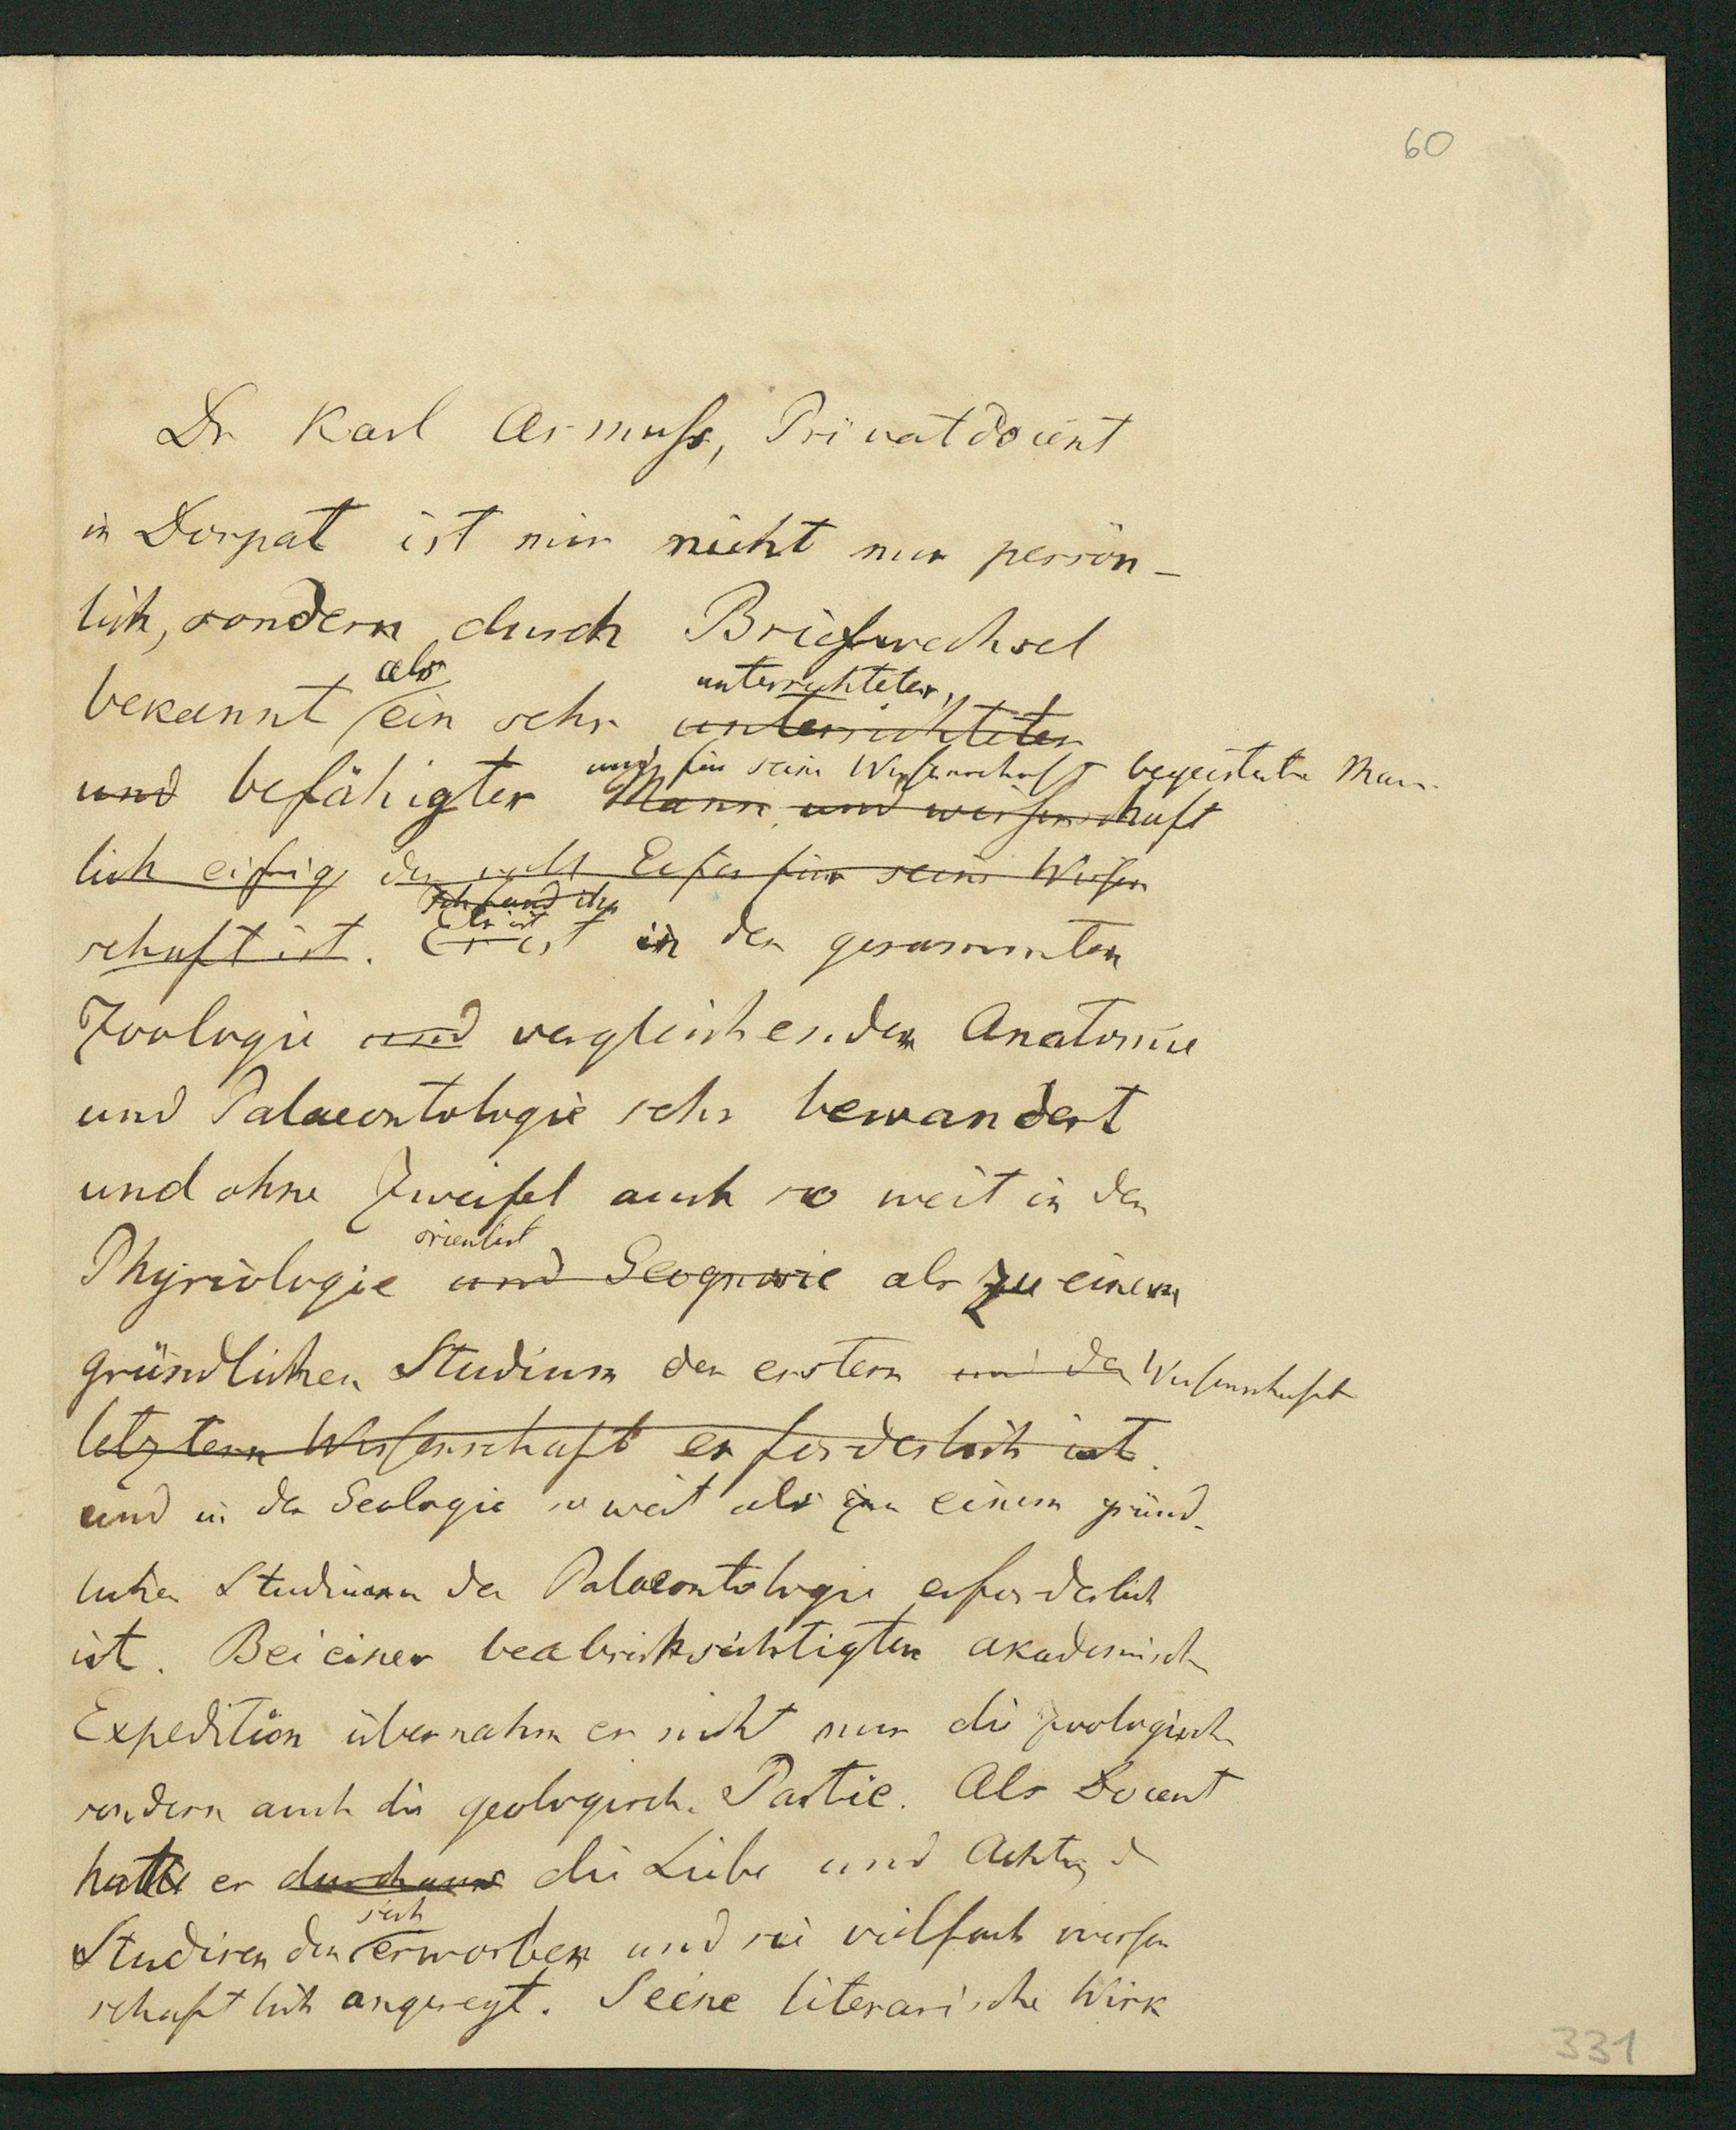 60
Dr Karl Asmuss, Privatdocent
in Dorpat ist mir nicht nur persön-
lich, sondern durch Briefwechsel
als unterrichteter,
bekannt ein sehr unterrichteter
und für seine Wissenschaft begeisterter Mann
und befähigter Mann und wissenschaft
lich eifrig der voll Eifer für seine Wissen
Ich fand ihn
Er ist
schaft ist. Er ist in der gesammten
Zoologie und vergleichenden Anatomie
und Palaeontologie sehr bewandert
und ohne Zweifel auch so weit in der
orientirt
Physiologie und Geognosie als zu einem
gründlichen Studium der erstern und der Wissenschaft
letztern Wissenschaft erforderlich ist.
und in der Geologie so weit als zu einem gründ-
lichen Studium der Palaeontologie erforderlich
ist. Bei einer beabsichtigten akademischen
Expedition übernahm er nicht nur die zoologische
sondern auch die geologische Partie. Als Docent
hatte er durchaus die Liebe und Achtung d
sich
Studirenden erworben und sie vielfach wissen
schaftlich angeregt. Seine literarische Wirk
331